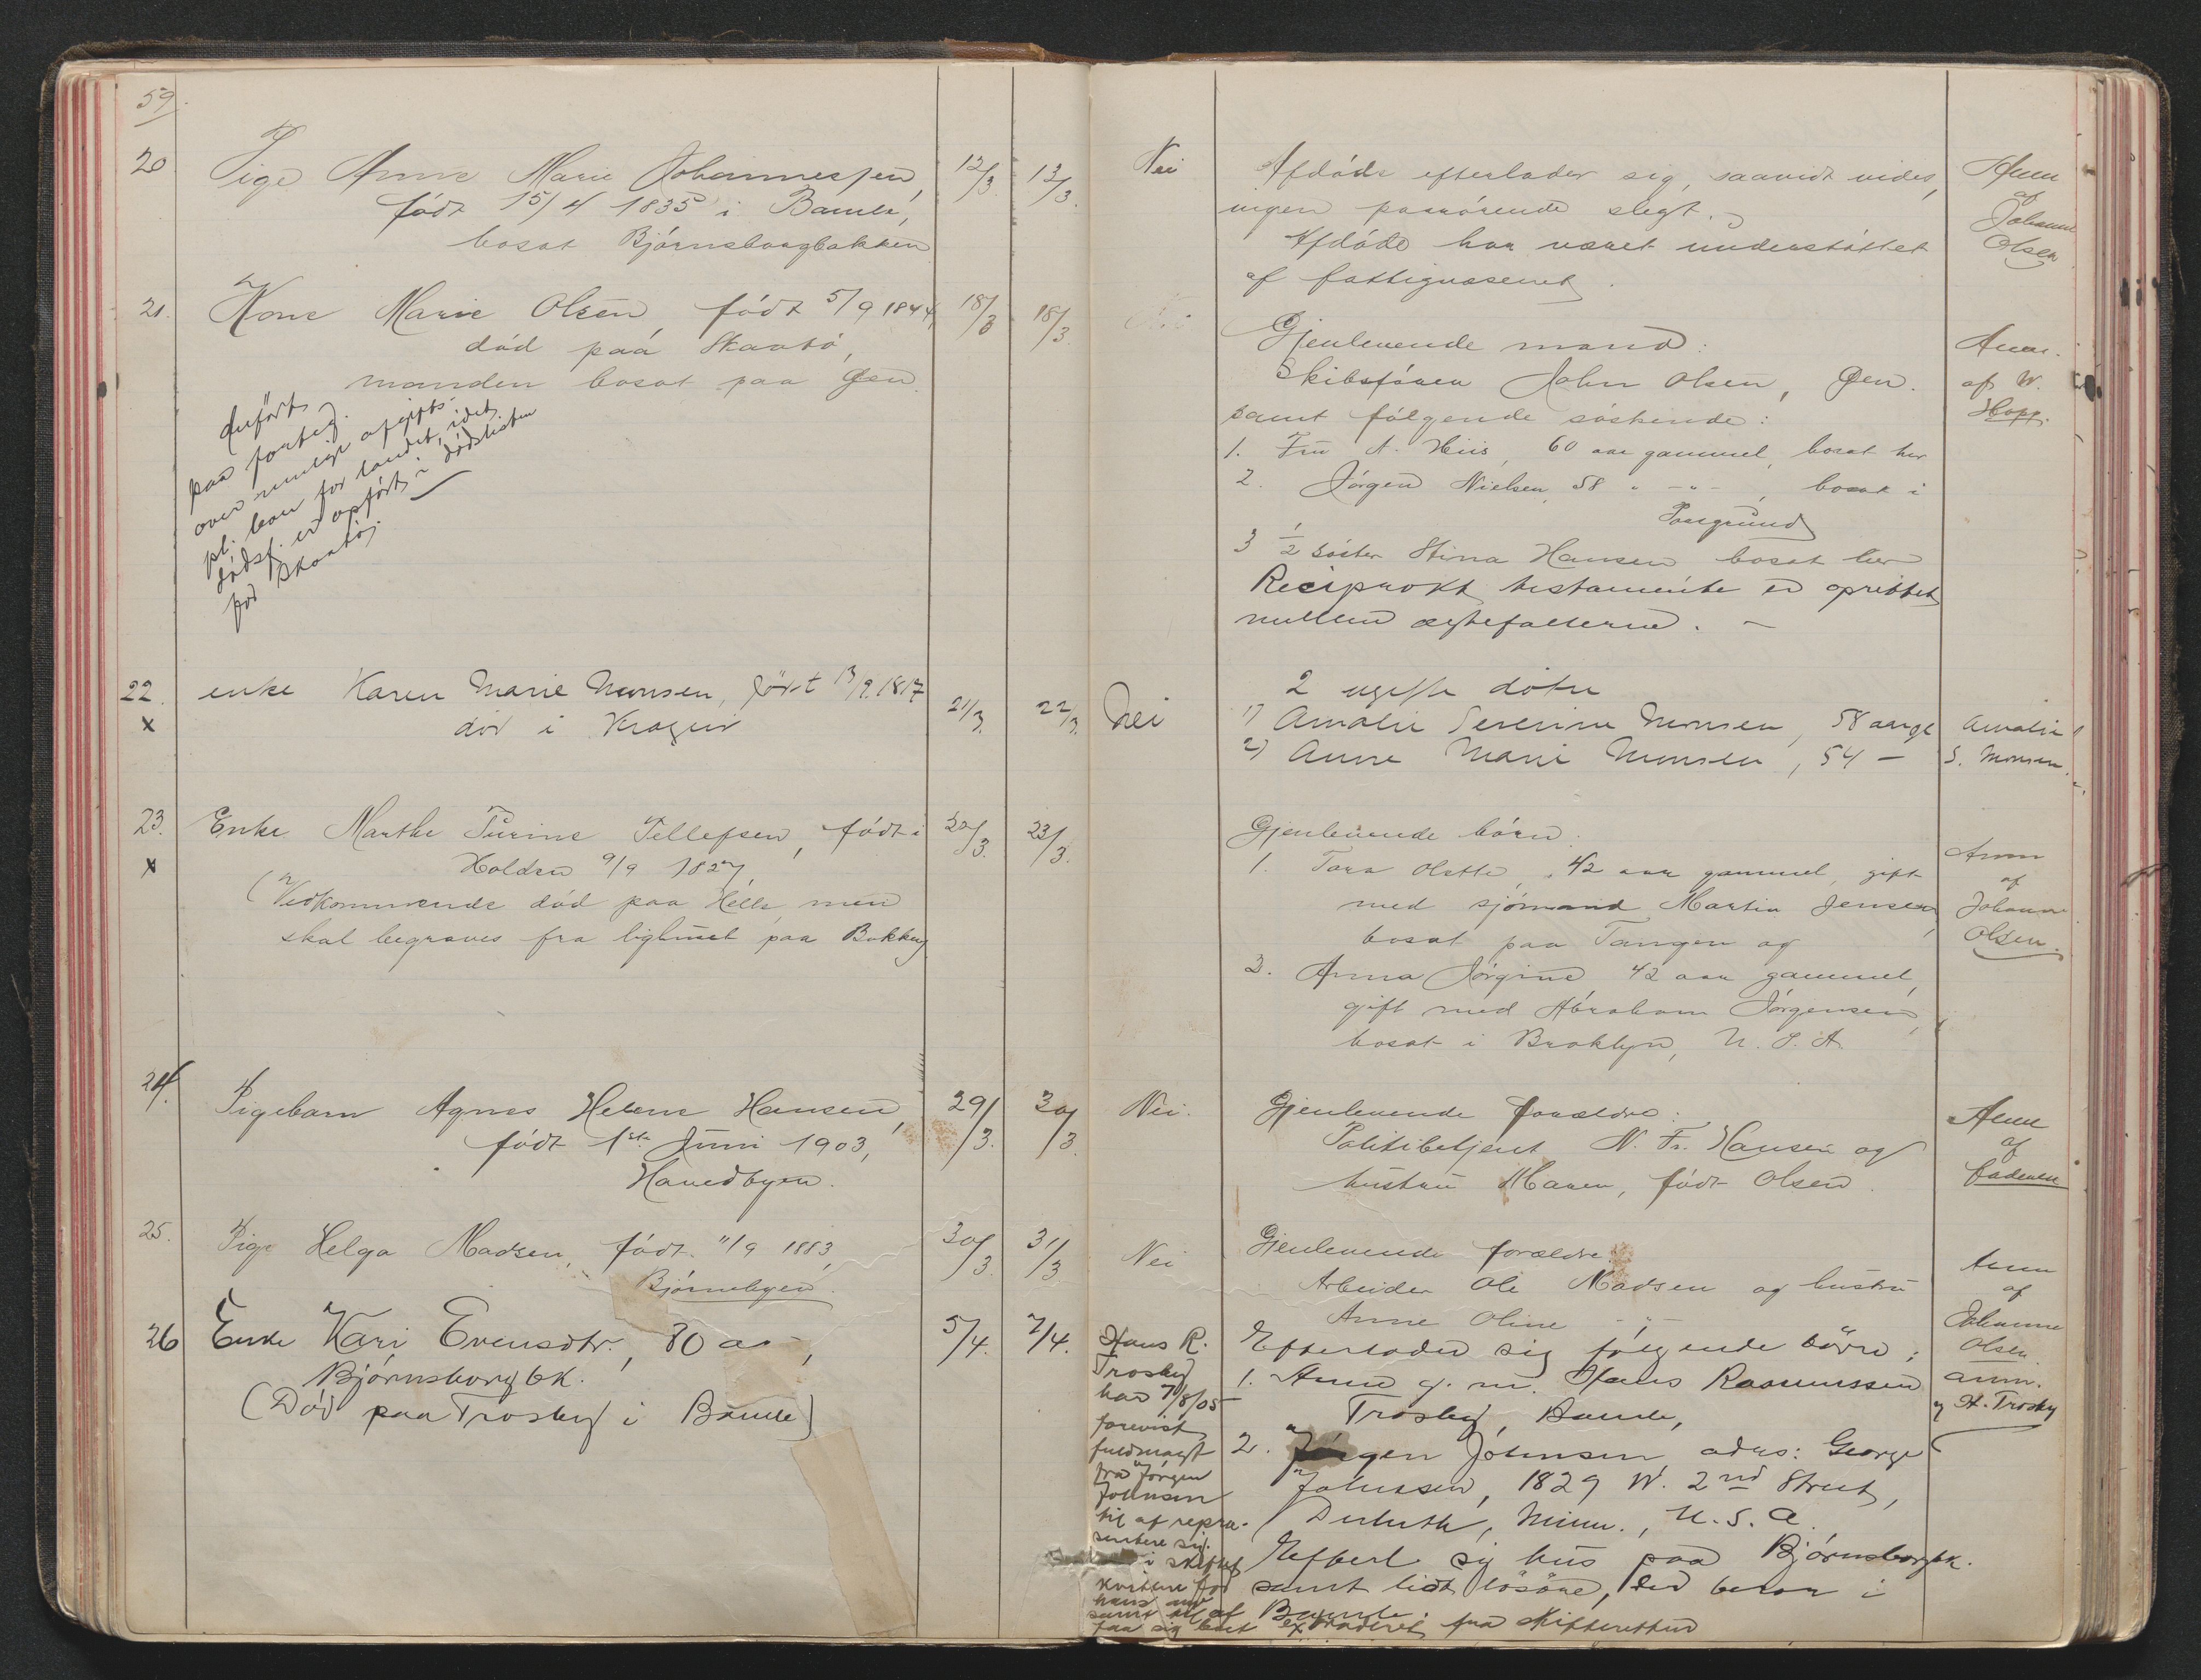 59.
20 Pige Anne Marie Johannessen, 12/3. 13/3.
født 15/4 1835 i Bamle,
bosat Bjørnsborgbakken
21. Kone Marie Olsen født 5/9 1844, 18/3 18/3.
død paa Skaatø,
manden bosat paa Øen.
Anført
paa forteg.
over mulige afgifts-
pl. bon for landet, idet
dødsf. er opført i dødslisten
for Skaatøj.
22. enke Karen Marie Monsen, født 13/9. 1817 21/3. 22/3.
x død i Kragerø
23. Enke Marthe Turine Tellefsen, født i 20/3. 23/3.
x Holden 9/9 1827,
(Vedkommende død paa Helle, men
skal begraves fra lighuset paa Bokkey
24. Pigebarn Agnes Helene Hansen, 29/3. 30/3.
født 1ste Juni 1903,
Havedbyen.
25. Pige Helga Madsen, født 11/9 1883, 30/3. 31/3
Bjørnebyen.
26 Enke Kari Evensdtr., 80 aar, 5/4. 7/4.
Bjørnsborgbk.
(Død paa Trosby i Bamle)
Nei Afdøde efterlader sig, saavidt vides,
ingen paarørende slegt.
Afdøde har været understøttet
af fattigvæsenet.
Anm
af
Johanne
Olsen
Gjenlevende mand:
Skibsfører John Olsen, Øen.
samt følgende søskende:
1. Fru N. Hiis, 60 aar gammel, bosat her
2. Jørgen Nielsen, 58 " - " - , bosat i
Porsgrund
3 1/2 søster Stina Hansen bosat her
Reciprokt testamente er oprettet
mellem ægtefællerne. -
Anm.
af W.
Hopp.
Nei 2 ugifte døtre
1) Amalie Severine Monsen, 58 aargl
2) Anne Marie Monsen, 54 -
Amalie
S. Monsen.
Gjenlevende børn:
1. Tara Olette, 42 aar gammel, gift
med sjømand Martin Jensen,
bosat paa Tangen og
2. Anna Jørgine 42 aar gammel,
gift med Abraham Jørgensen,
bosat i Broklyn, U. S. A.
Anm
af
Johanne
Olsen.
Nei. Gjenlevende forældre:
Politibetjent N. Fr. Hansen og
hustru Maren, født Olsen.
Anm
af
faderen
Nei Gjenlevende forældre:
Arbeider Ole Madsen og hustru
Anne Oline - " -
Anm
af
Johanne
Olsen.
Efterlader sig følgende børn:
1. Anne g. m. Hans Rasmussen
Trosby, Bamle,
2. Jørgen Johnsen, adrs: George
Johnssen, 1829 W. 2nd Street,
Duluth, Minn., U. S. A.
Efterl. sig hus paa Bjørnsborgbk.
samt lidt løsøre, der beror i
Bamle.
anm.
af H. Trosby
Hans R.
Trosby
har 7/8/05
forevist
fuldmagt
fra Jørgen
Johnsen
til at repræ-
sentere sig
i skiftet
kvittere for
hans arv
samt til at
faa sig boet extraderet fra Skifteretten